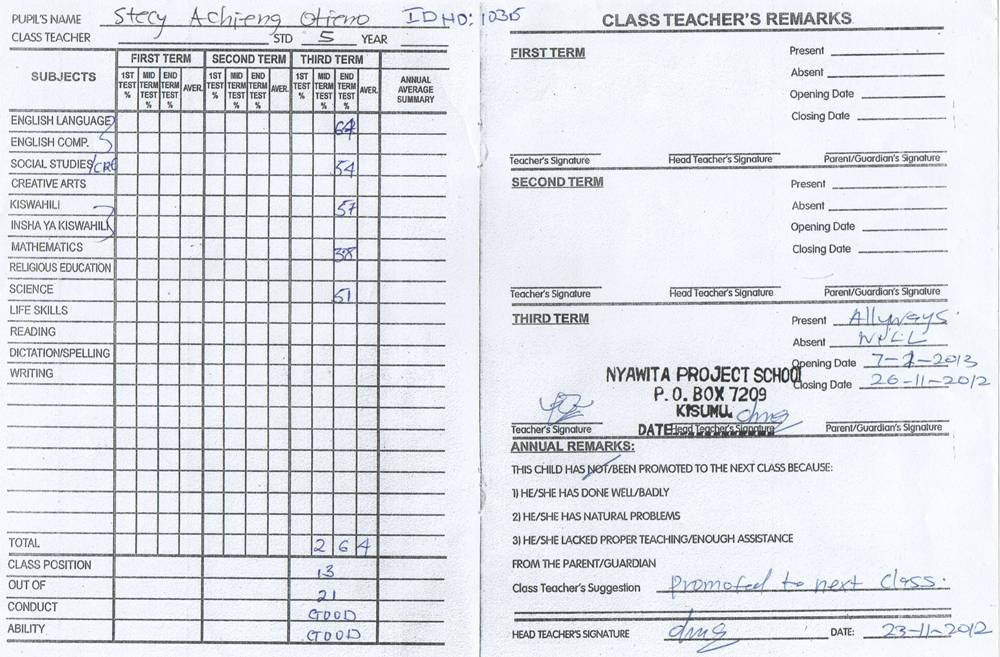 PUPIL'S NAME Stecy Achieng Otieno ID NO: 10315
CLASS TEACHER STD 5 YEAR
SUBJECTS
FIRST TERM SECOND TERM THIRD TERM
1ST TEST % MID TERM TEST % END TERM TEST % AVER. 1ST TEST % MID TERM TEST % END TERM TEST % AVER. 1ST TEST % MID TERM TEST % END TERM TEST % AVER. ANNUAL AVERAGE SUMMARY
ENGLISH LANGUAGE 64
ENGLISH COMP.
SOCIAL STUDIES/CRE 54
CREATIVE ARTS
KISWAHILI 57
INSHA YA KISWAHILI
MATHEMATICS 38
RELIGIOUS EDUCATION
SCIENCE 51
LIFE SKILLS
READING
DICTATION/SPELLING
WRITING
TOTAL 2 6 4
CLASS POSITION 13
OUT OF 21
CONDUCT GOOD
ABILITY GOOD
CLASS TEACHER'S REMARKS
FIRST TERM
Present
Absent
Opening Date
Closing Date
Teacher's Signature Head Teacher's Signature Parent/Guardian's Signature
SECOND TERM
Present
Absent
Opening Date
Closing Date
Teacher's Signature Head Teacher's Signature Parent/Guardian's Signature
THIRD TERM
Present Allways
Absent NILL
Opening Date 7-1-2013
Closing Date 26-11-2012
NYAWITA PROJECT SCHOOL
P. O. BOX 7209
KISUMU.
DATE
Teacher's Signature Head Teacher's Signature Parent/Guardian's Signature
ANNUAL REMARKS:
THIS CHILD HAS NOT/BEEN PROMOTED TO THE NEXT CLASS BECAUSE:
1) HE/SHE HAS DONE WELL/BADLY
2) HE/SHE HAS NATURAL PROBLEMS
3) HE/SHE LACKED PROPER TEACHING/ENOUGH ASSISTANCE
FROM THE PARENT/GUARDIAN
Class Teacher's Suggestion promoted to next class.
HEAD TEACHER'S SIGNATURE DATE: 23-11-2012